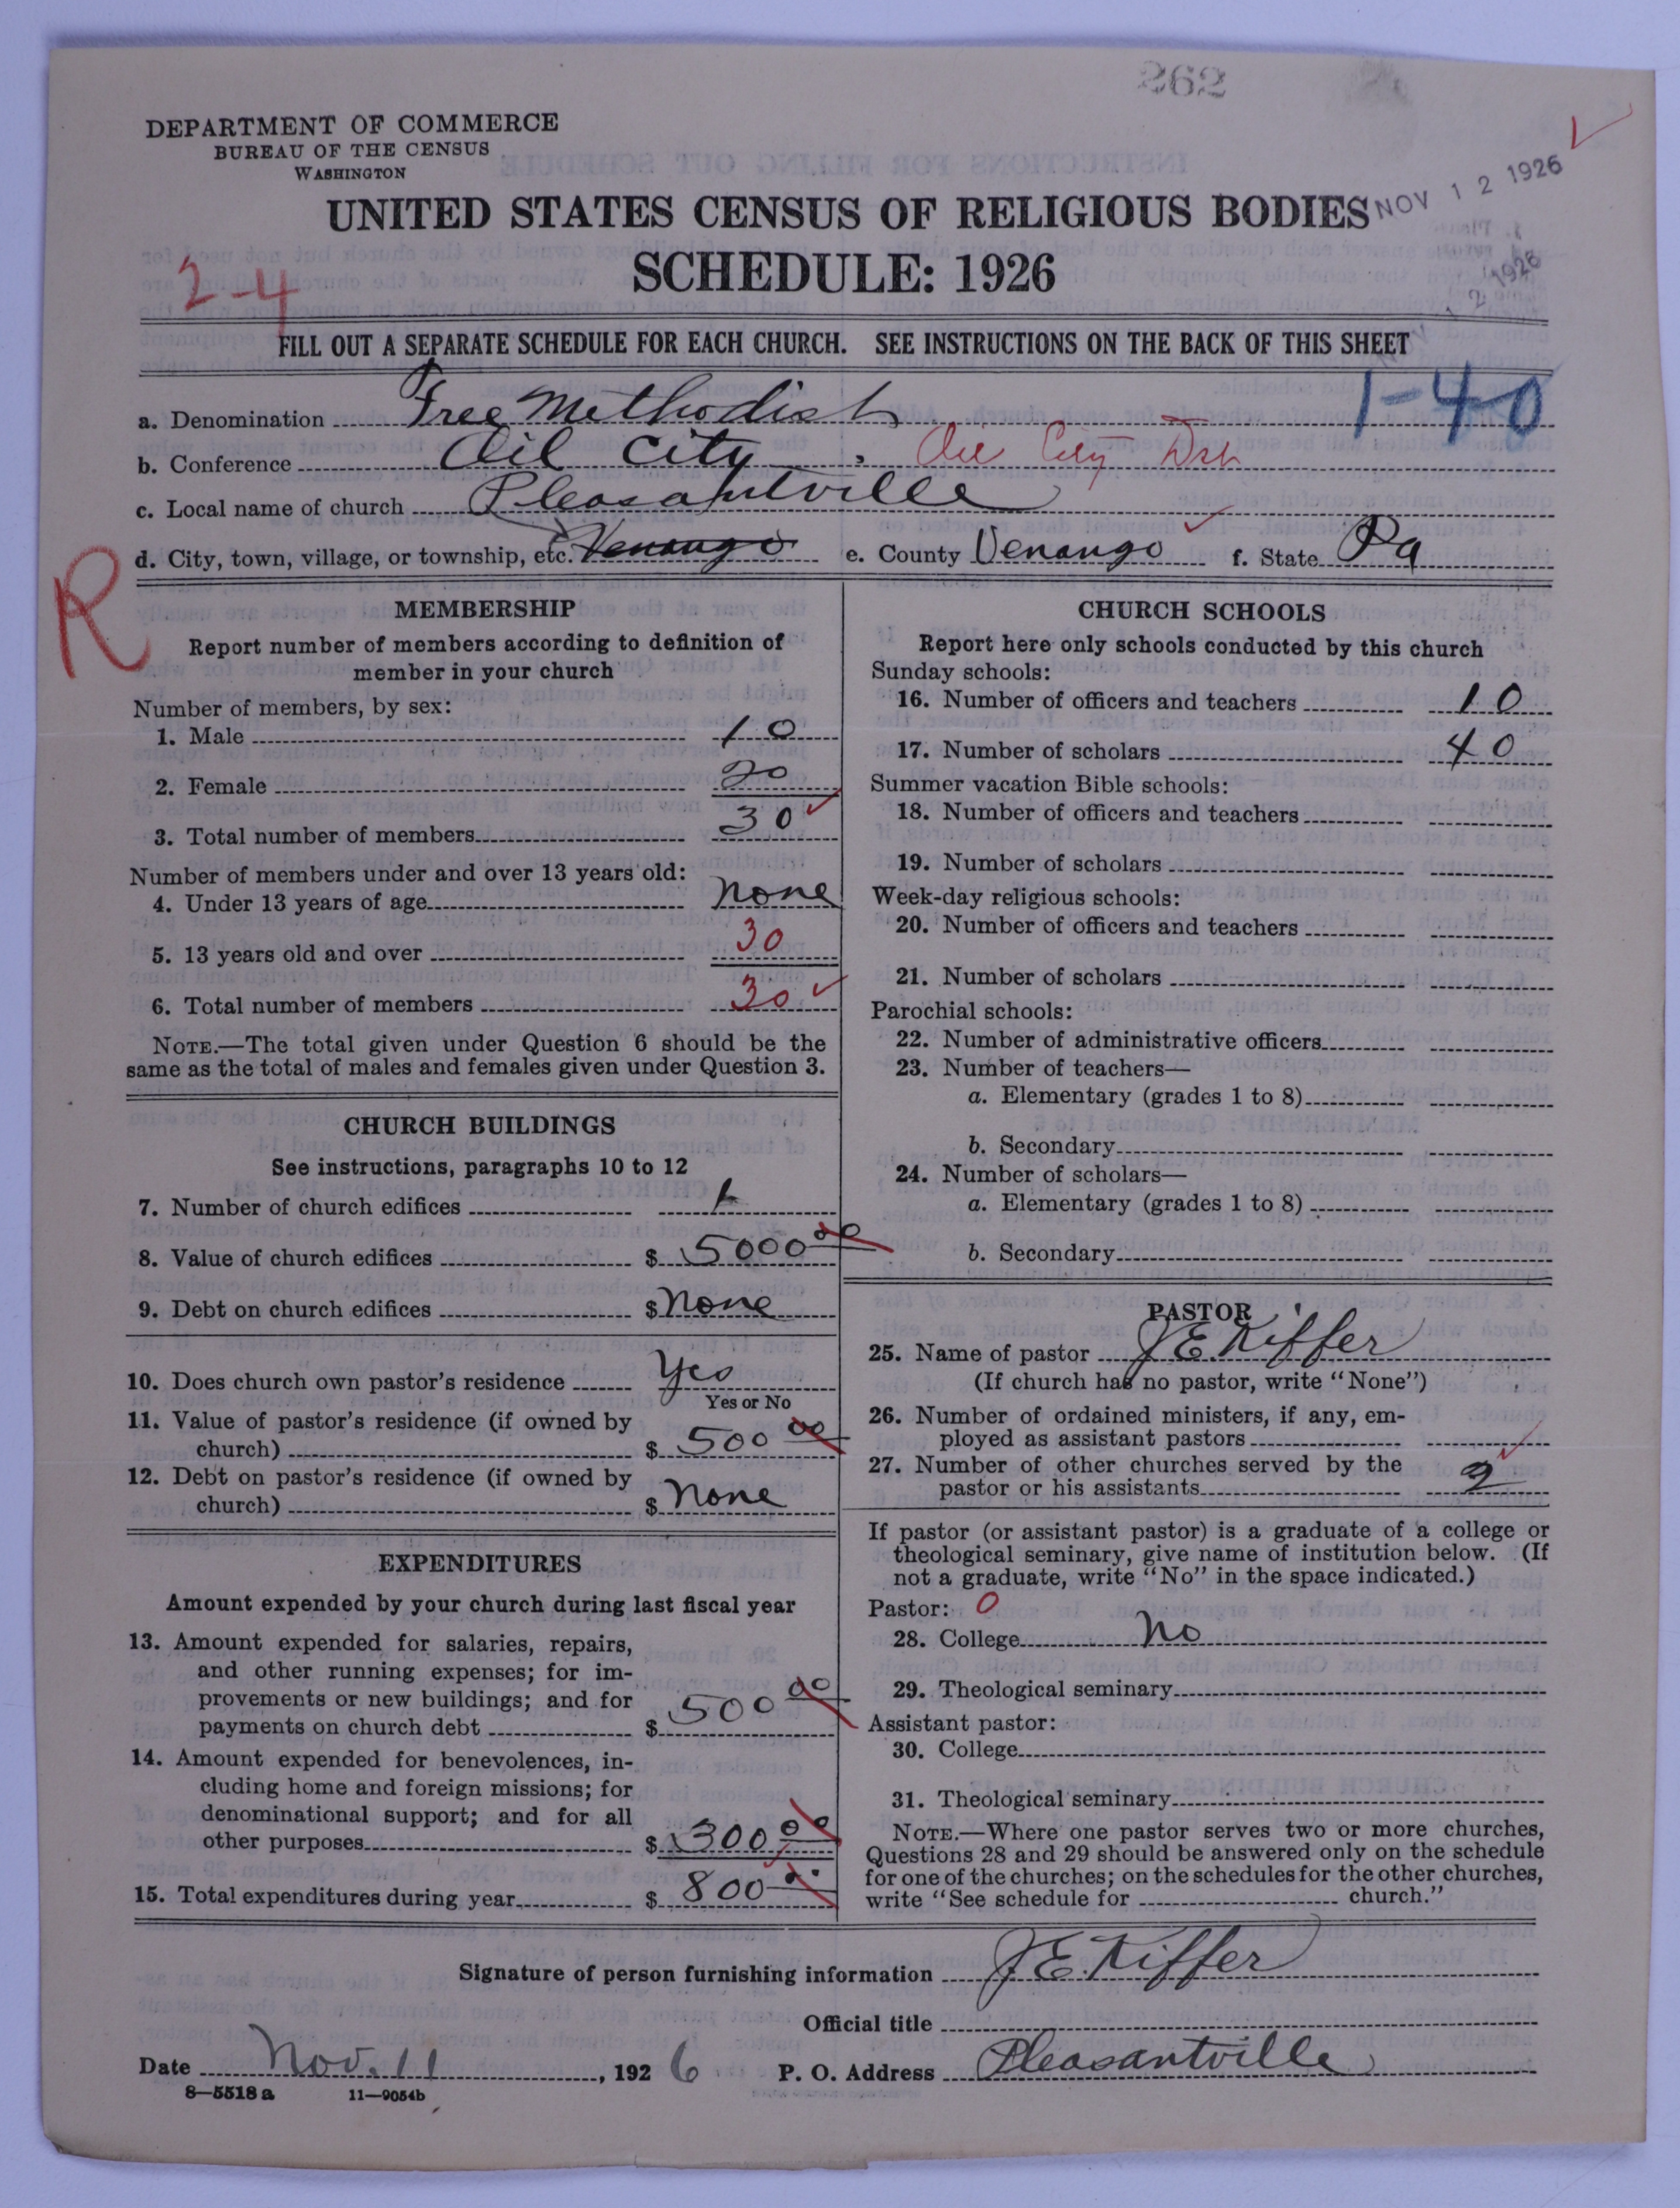 262
DEPARTMENT OF COMMERCE
BUREAU OF THE CENSUS
WASHINGTON
UNITED STATES CENSUS OF RELIGIOUS BODIES
NOV 12 1926
SCHEDULE: 1926
2-4
FILL OUT A SEPARATE SCHEDULE FOR EACH CHURCH. SEE INSTRUCTIONS ON THE BACK OF THIS SHEET
1-40
a. Denomination Free Methodist
b. Conference Oil City, Oil City Dst
c. Local name of church Pleasantville
d. City, town, village, or township, etc. Venango e. County Venango f. State Pa
R
MEMBERSHIP
Report number of members according to definition of
member in your church
Number of members, by sex:
1. Male 10
2. Female 20
3. Total number of members 30
Number of members under and over 13 years old:
4. Under 13 years of age none
5. 13 years old and over 30
6. Total number of members 30
NOTE.—The total given under Question 6 should be the
same as the total of males and females given under Question 3.
CHURCH BUILDINGS
See instructions, paragraphs 10 to 12
7. Number of church edifices 1
8. Value of church edifices $ 5000 00
9. Debt on church edifices $ none
10. Does church own pastor's residence Yes
Yes or No
11. Value of pastor's residence (if owned by
church) $ 500 00
12. Debt on pastor's residence (if owned by
church) $ none
EXPENDITURES
Amount expended by your church during last fiscal year
13. Amount expended for salaries, repairs,
and other running expenses; for im-
provements or new buildings; and for
payments on church debt $ 500 00
14. Amount expended for benevolences, in-
cluding home and foreign missions; for
denominational support; and for all
other purposes $ 300 00
15. Total expenditures during year $ 800 00
CHURCH SCHOOLS
Report here only schools conducted by this church
Sunday schools:
16. Number of officers and teachers 10
17. Number of scholars 40
Summer vacation Bible schools:
18. Number of officers and teachers
19. Number of scholars
Week-day religious schools:
20. Number of officers and teachers
21. Number of scholars
Parochial schools:
22. Number of administrative officers
23. Number of teachers—
a. Elementary (grades 1 to 8)
b. Secondary
24. Number of scholars—
a. Elementary (grades 1 to 8)
b. Secondary
PASTOR
25. Name of pastor J.E. Kiffer
(If church has no pastor, write "None")
26. Number of ordained ministers, if any, em-
ployed as assistant pastors
27. Number of other churches served by the
pastor or his assistants 2
If pastor (or assistant pastor) is a graduate of a college or
theological seminary, give name of institution below. (If
not a graduate, write "No" in the space indicated.)
Pastor: 0
28. College No
29. Theological seminary
Assistant pastor:
30. College
31. Theological seminary
NOTE.—Where one pastor serves two or more churches,
Questions 28 and 29 should be answered only on the schedule
for one of the churches; on the schedules for the other churches,
write "See schedule for church."
Signature of person furnishing information J.E. Kiffer
Official title
Date Nov. 11, 1926 P. O. Address Pleasantville
8—5518 a 11—9054b